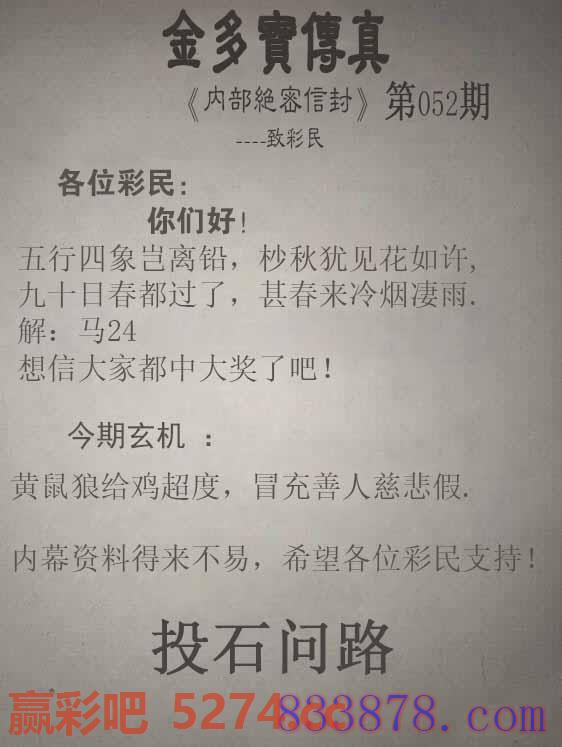 金多寶傳真
《内部絶密信封》第052期
----致彩民
各位彩民:
你们好!
五行四象岂离铅，杪秋犹见花如许,
九十日春都过了，甚春来冷烟凄雨.
解：马24
想信大家都中大奖了吧!
今期玄机 ：
黄鼠狼给鸡超度，冒充善人慈悲假.
内幕资料得来不易，希望各位彩民支持!
投石问路
赢彩吧 5274.cc
833878.com